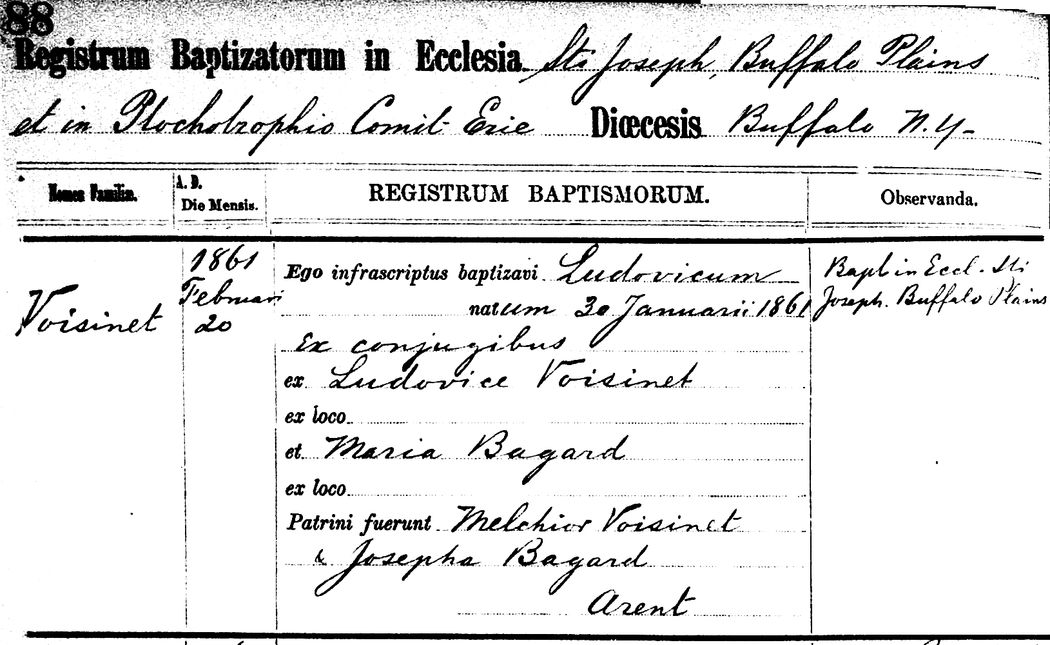 88
Registrum Baptizatorum in Ecclesia Sti Joseph, Buffalo Plains
et in Ptochotrophio Comit Erie Diœcesis Buffalo N.Y-
Nomen Familiæ.
A. D.
Die Mensis.
REGISTRUM BAPTISMORUM.
Observanda.
Voisinet
1861
Februari
20
Ego infrascriptus baptizavi Ludovicum
natum 30 Januarii 1861
Ex conjugibus
ex Ludovice Voisinet
ex loco
et Maria Bagard
ex loco
Patrini fuerunt Melchior Voisinet
& Josepha Bagard
Arent
Bapt in Eccl. Sti
Joseph. Buffalo Plains